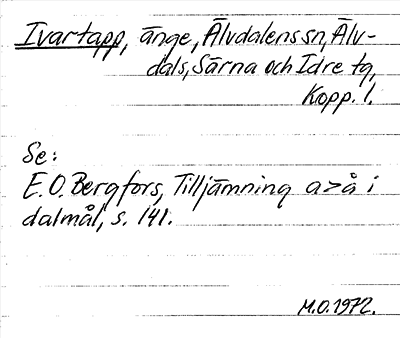 Ivartapp, änge, Älvdalens sn, Älv-
dals, Särna och Idre tg,
Kopp. l.
Se:
E.O. Bergfors, Tilljämning a>å i
dalmål, s. 141.
M.O. 1972.